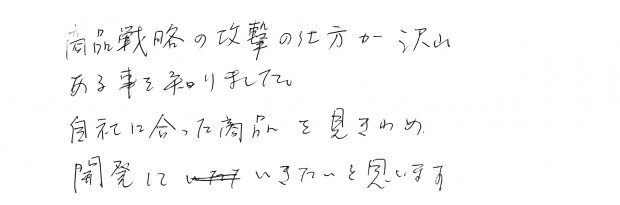 商品戦略の攻撃の仕方が沢山
ある事を知りました。
自社に合った商品を見きわめ
開発していきたいと思います